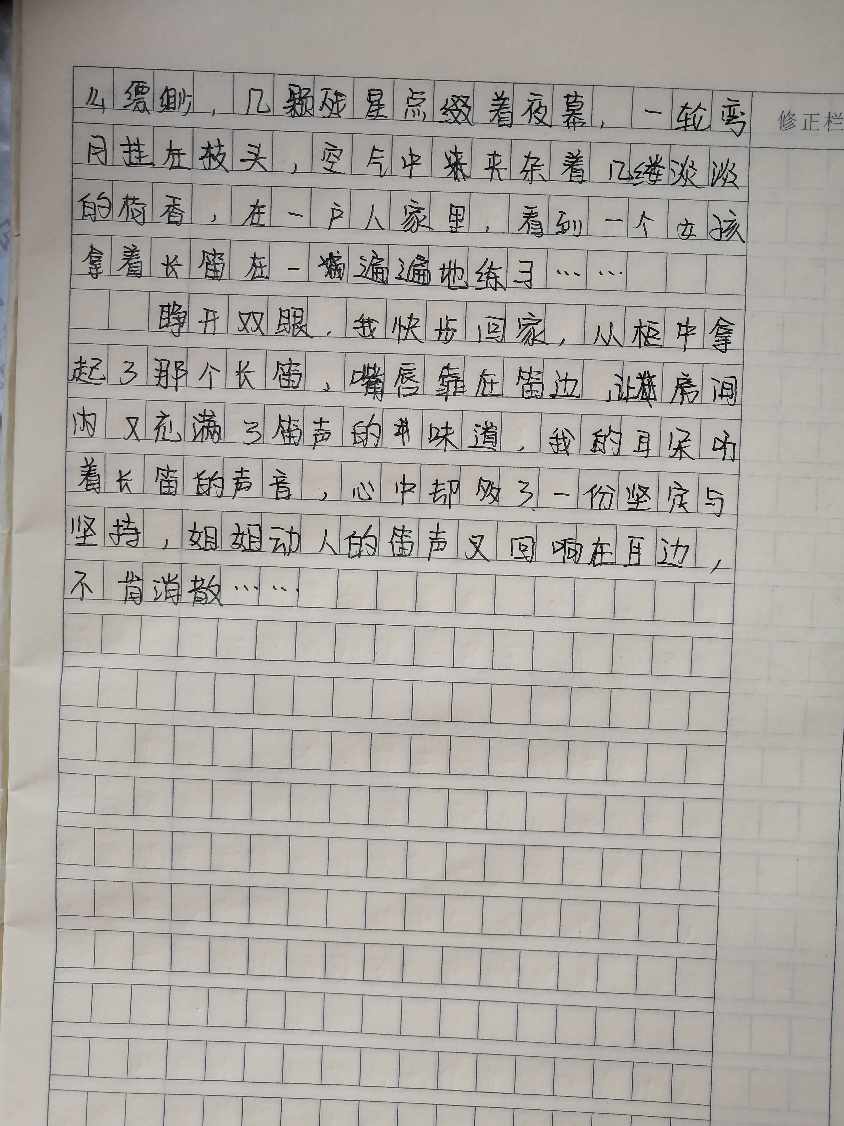 么缥缈，几颗残星点缀着夜幕，一轮弯
修正栏
月挂在枝头，空气中夹杂着几缕淡淡
的荷香，在一户人家里，看到一个女孩
拿着长笛在一遍遍地练习……
睁开双眼，我快步回家，从柜中拿
起了那个长笛，嘴唇靠在笛边，让房间
内又充满了笛声的味道，我的耳朵听
着长笛的声音，心中却多了一份坚定与
坚持，姐姐动人的笛声又回响在耳边，
不肯消散……